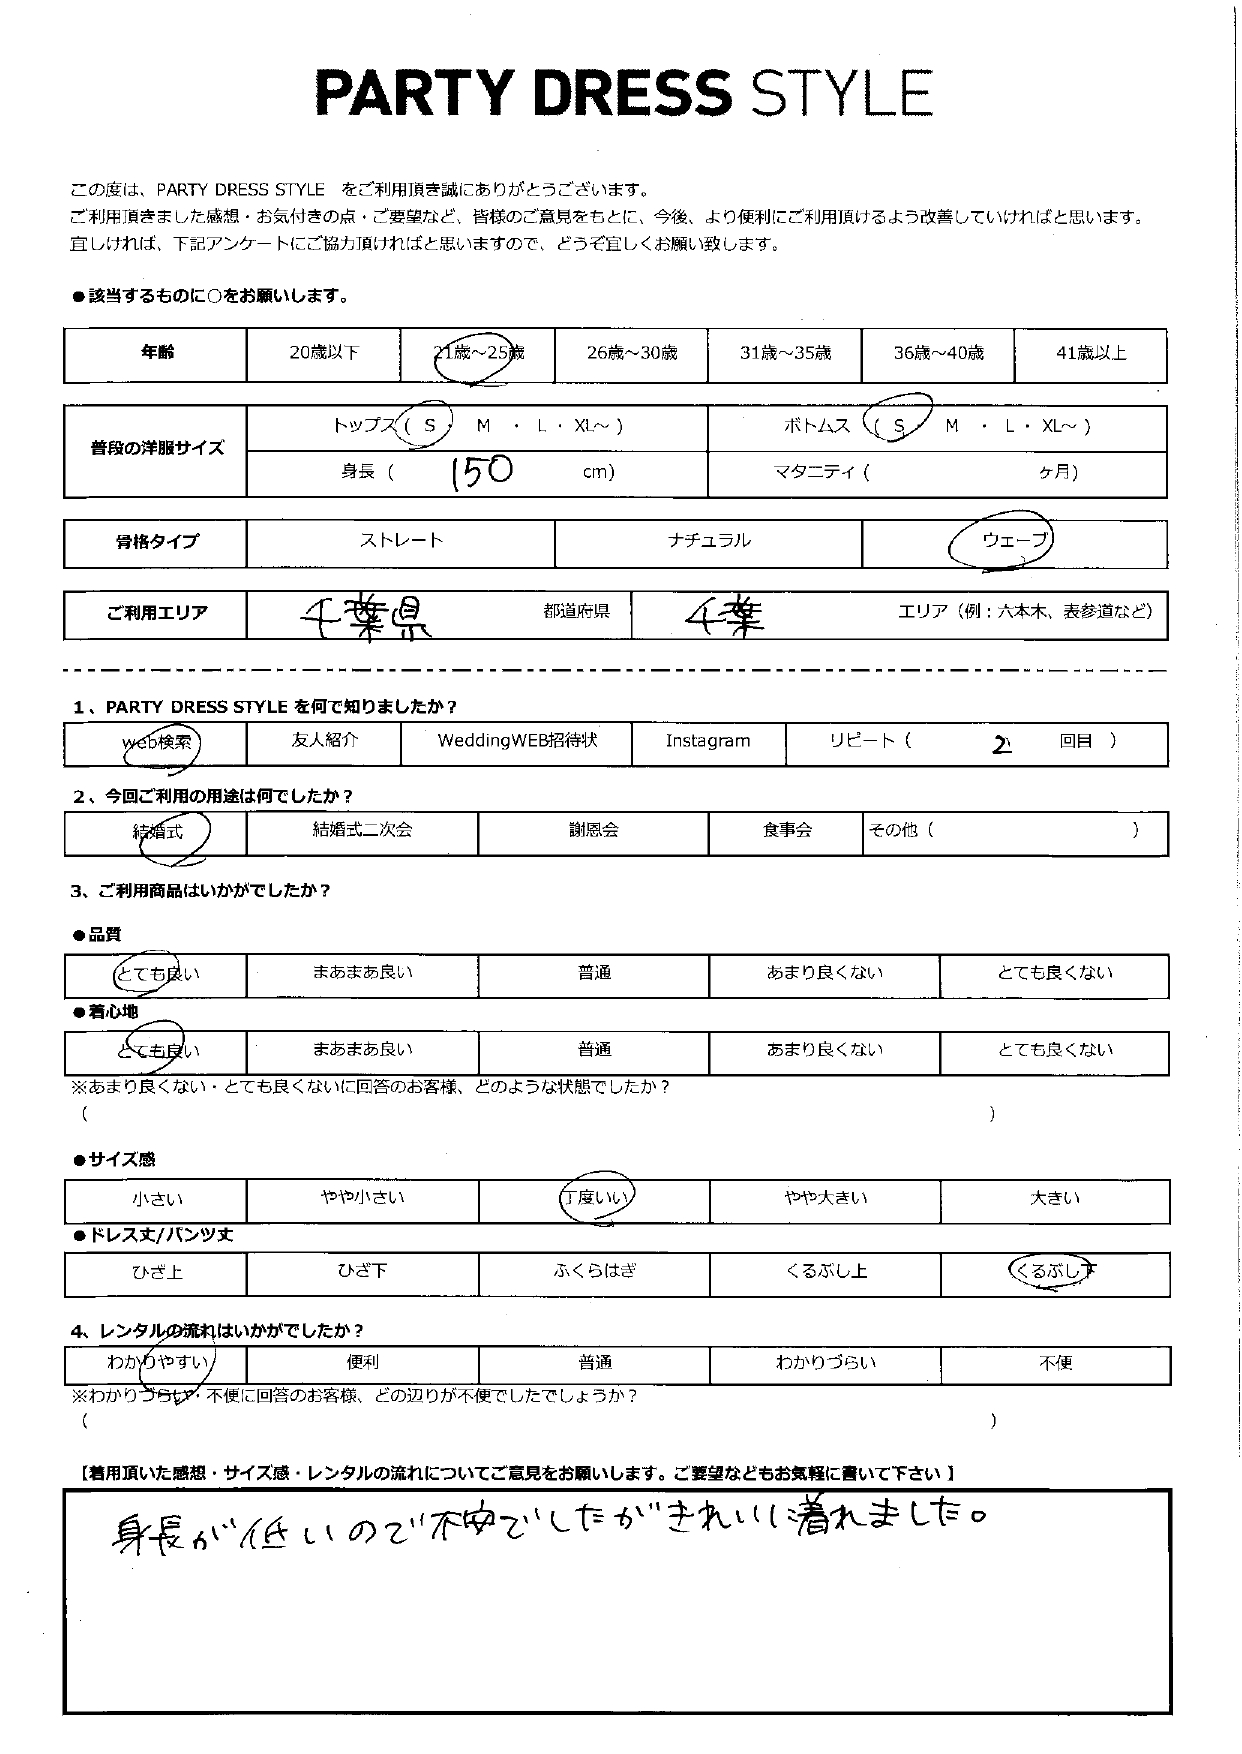 PARTY DRESS STYLE
この度は、PARTY DRESS STYLE をご利用頂き誠にありがとうございます。
ご利用頂きました感想・お気付きの点・ご要望など、皆様のご意見をもとに、今後、より便利にご利用頂けるよう改善していければと思います。
宜しければ、下記アンケートにご協力頂ければと思いますので、どうぞ宜しくお願い致します。
●該当するものに○をお願いします。
年齢 20歳以下 21歳～25歳 26歳～30歳 31歳～35歳 36歳～40歳 41歳以上
普段の洋服サイズ トップス( S ・ M ・ L ・ XL～ ) ボトムス ( S ・ M ・ L ・ XL～ )
身長 ( 150 cm) マタニティ ( ヶ月)
骨格タイプ ストレート ナチュラル ウェーブ
ご利用エリア 千葉県 都道府県 千葉 エリア（例：六本木、表参道など）
1、PARTY DRESS STYLE を何で知りましたか？
web検索 友人紹介 WeddingWEB招待状 Instagram リピート ( 2 回目 )
2、今回ご利用の用途は何でしたか？
結婚式 結婚式二次会 謝恩会 食事会 その他 ( )
3、ご利用商品はいかがでしたか？
●品質
とても良い まあまあ良い 普通 あまり良くない とても良くない
●着心地
とても良い まあまあ良い 普通 あまり良くない とても良くない
※あまり良くない・とても良くないに回答のお客様、どのような状態でしたか？
( )
●サイズ感
小さい やや小さい 丁度いい やや大きい 大きい
●ドレス丈/パンツ丈
ひざ上 ひざ下 ふくらはぎ くるぶし上 くるぶし下
4、レンタルの流れはいかがでしたか？
わかりやすい 便利 普通 わかりづらい 不便
※わかりづらい・不便に回答のお客様、どの辺りが不便でしたでしょうか？
( )
【着用頂いた感想・サイズ感・レンタルの流れについてご意見をお願いします。ご要望などもお気軽に書いて下さい】
身長が低いので不安でしたがきれいに着れました。